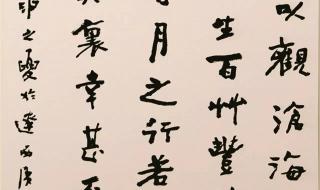 以觀滄海
生百艸豐
月之行若
襄幸甚至
之夏於